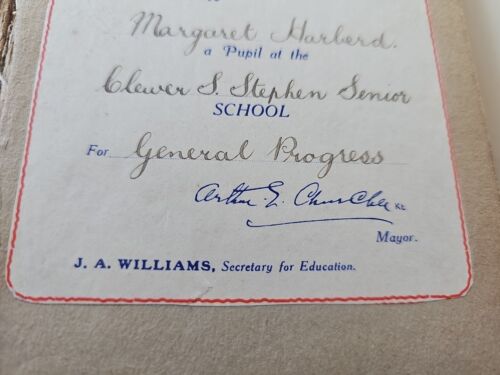 Margaret Harberd.
a Pupil at the
Clewer S. Stephen Senior
SCHOOL
For General Progress
Arthur E. Churchlee
Mayor.
J. A. WILLIAMS, Secretary for Education.